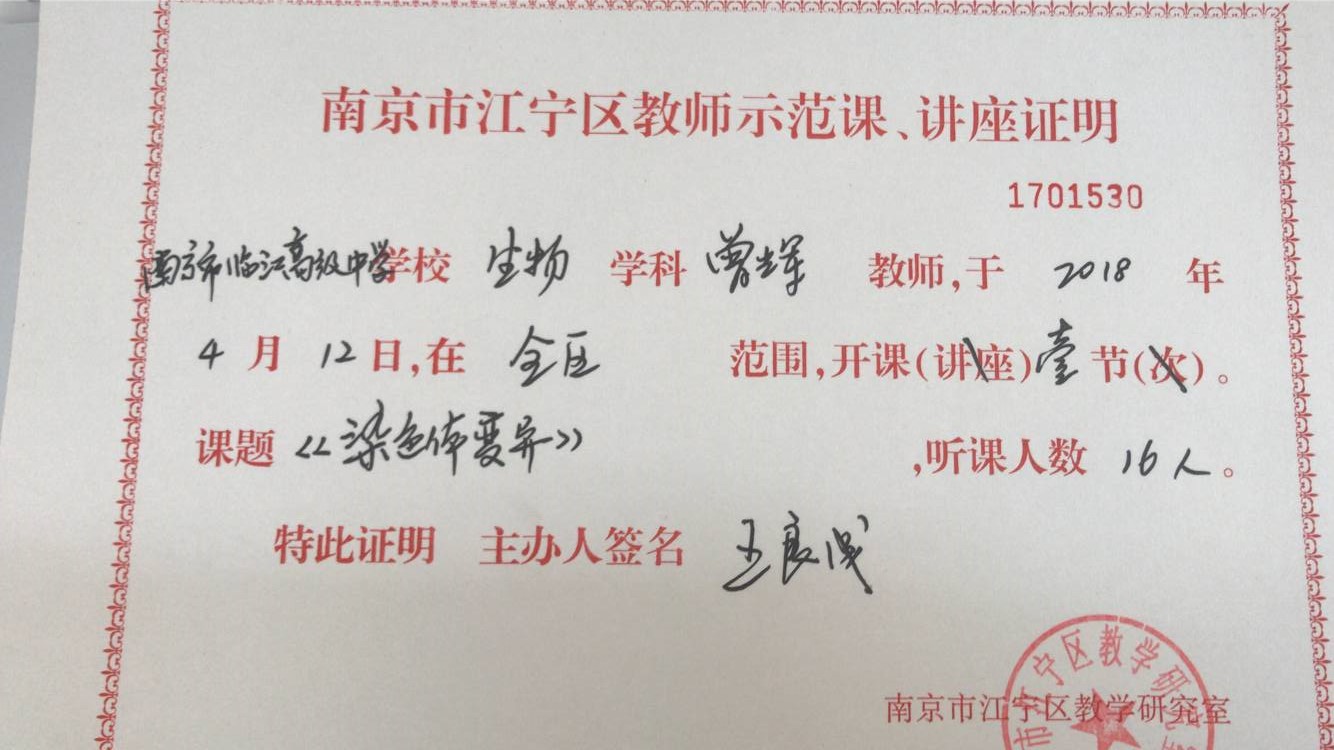 南京市江宁区教师示范课、讲座证明
1701530
南京市临江高级中学学校 生物 学科 曾辉 教师,于 2018 年
4 月 12 日,在 全区 范围,开课(讲座)壹节(次)。
课题《染色体变异》,听课人数 16人。
特此证明 主办人签名 王良
南京市江宁区教学研究室
市江宁区教学研究室